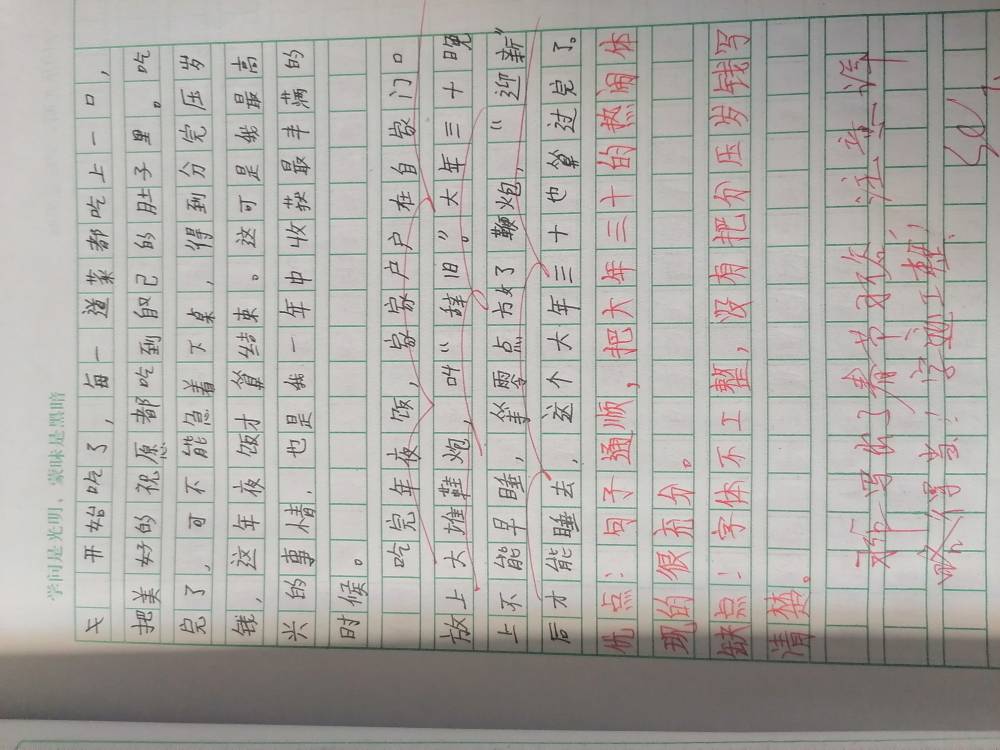 学问是光明，蒙昧是黑暗
开始吃了，每一道菜都吃上一口，
把美好的祝愿都吃到自己的肚子里。吃
完了，可不能急着下桌，得到分完压岁
钱，这年夜饭才算结束。这可是我最高
兴的事情，也是我一年中收获最丰满的
时候。
吃完年夜饭，家家户户在自家门口
放上大堆鞋炮，叫“辞旧”。大年三十晚
上不能早睡，等零点放了鞭炮，“迎新”
后才能睡去，这个大年三十也算过完了。
优点：句子通顺，把大年三十的热闹体
现的很充分。
缺点：字体不工整，没有把分压岁钱写
清楚。
你写出了春节习俗，注意详
略得当！字迹工整！